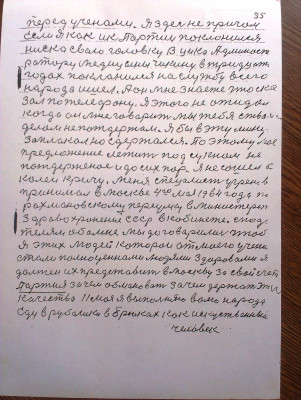 35
перед ученами. Я здесь не причом
если я как ик Партии поклонился
ниско свою головку В. цика Админост
ратору медицины Чикину в тридцит
годах поклонился на службу всего
народа ишел. А он мне знаете што ска
зал по телефону. Я этого не ожидал
когда он мне говорит мы тебя в твоем
деле не потдержам. Я бы в эту мину.
Заплакал но сдержался. По этому мое
предложение летит под сукном не
потдержаное и до сих пар. Я не пошол а
колеи к врачу. меня специалист учрен в
принимал в Москве 4го мая 1984 года по
рахмановскому переулку в министерст
Здравоохронения СССР в кобинете. с пода
телям, о балне мы договорились чтоб
я этих людей которои от моего учени
стали помоценнами людями Здоровами я
должен их представить в Москву за свои счет
партия зачем обманывать зачем держать эти
качества 11 мая я выполняю волю народа
еду в рубашки в брюках как искуственный
человек